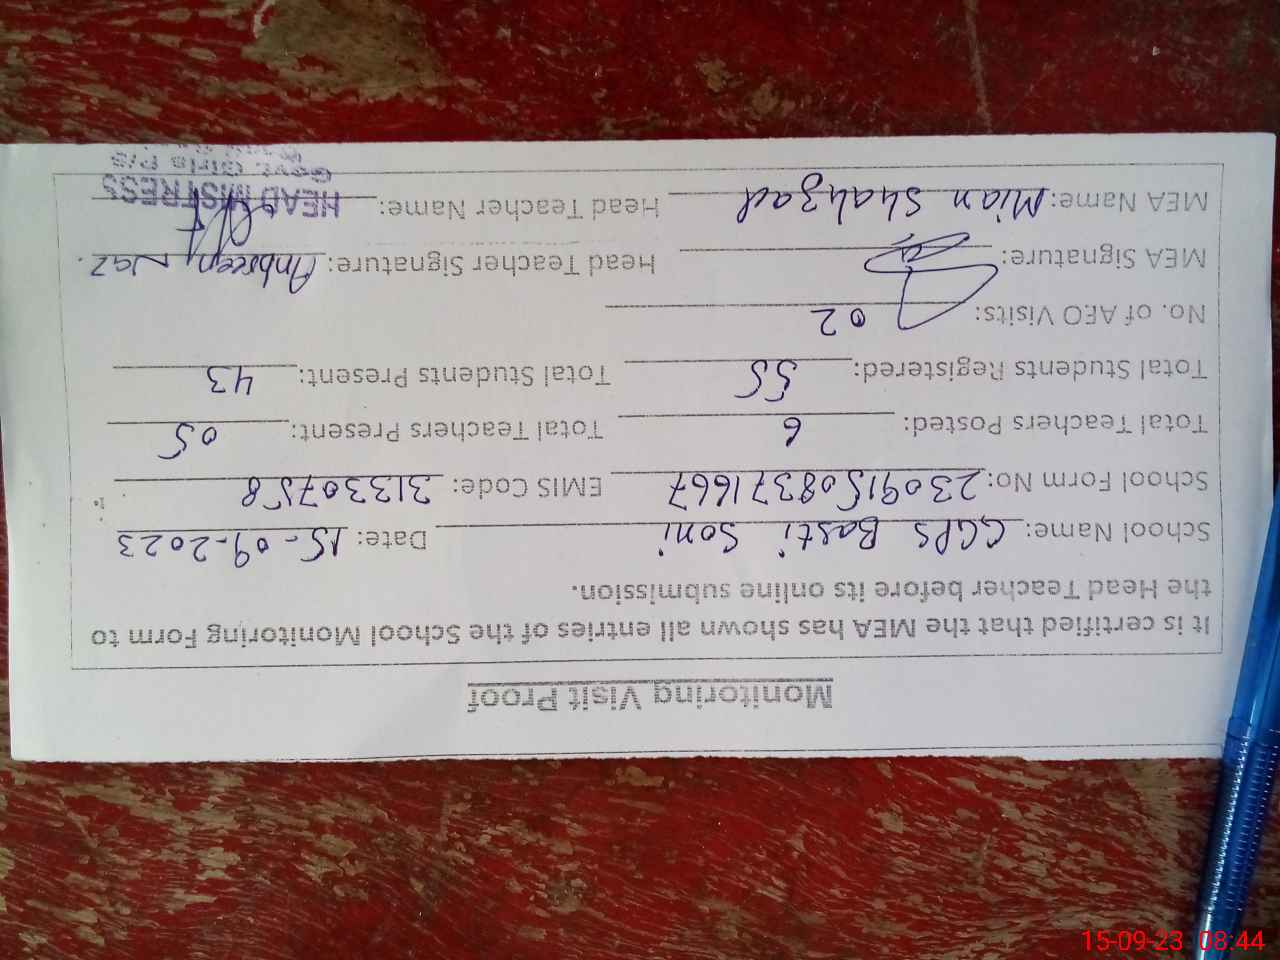 Monitoring Visit Proof
It is certified that the MEA has shown all entries of the School Monitoring Form to
the Head Teacher before its online submission.
School Name: GGPS Basti Soni Date: 15-09-2023
School Form No: 230915083371667 EMIS Code: 31330758
Total Teachers Posted: 6 Total Teachers Present: 05
Total Students Registered: 55 Total Students Present: 43
No. of AEO Visits: 02
MEA Signature: Head Teacher Signature: Ambreen Naz.
MEA Name: Mian Shahzad Head Teacher Name:
HEAD MISTRESS
Govt. Girls P/S
15-09-23 08:44